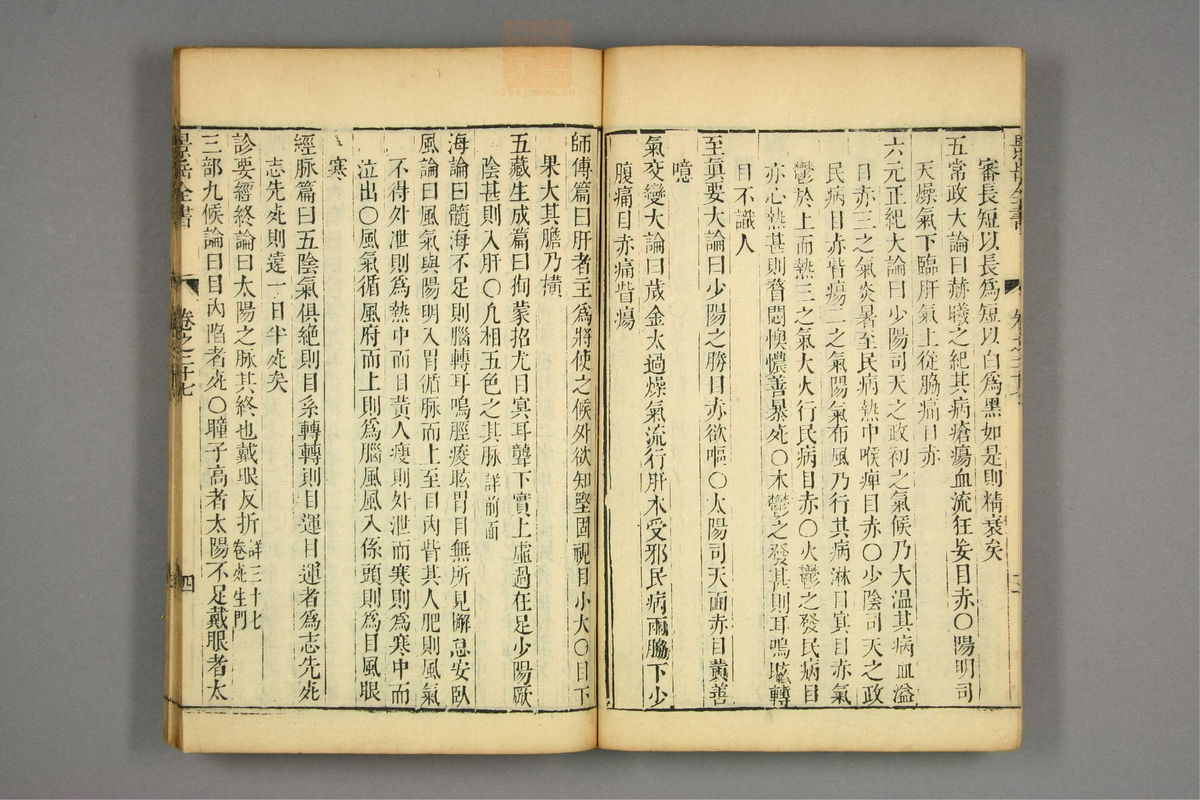 審長短以長爲短以白爲黑如是則精衰矣
五常政大論曰赫曦之紀其病瘡瘍血流狂妄目赤〇陽明司
天燥氣下臨肝氣上從脇痛目赤
六元正紀大論曰少陽司天之政初之氣候乃大溫其病血溢
目赤三之氣炎暑至民病熱中喉痺目赤〇少陰司天之政
民病目赤眥瘍二之氣陽氣布風乃行其病淋目瞑目赤氣
鬱於上而熱三之氣大火行民病目赤〇火鬱之發民病目
赤心熱甚則瞀悶懊憹善暴死〇木鬱之發甚則耳鳴眩轉
目不識人
至眞要大論曰少陽之勝目赤欲嘔〇太陽司天面赤目黃善
噫
氣交變大論曰歲金太過燥氣流行肝木受邪民病兩脇下少
腹痛目赤痛眥瘍
師傳篇曰肝者主爲將使之候外欲知堅固視目小大〇目下
果大其膽乃橫
五藏生成篇曰徇蒙招尤目冥耳聾下實上虛過在足少陽厥
陰甚則入肝〇凡相五色之其脉 詳前面
海論曰髓海不足則腦轉耳鳴脛痠眩冒目無所見懈怠安臥
風論曰風氣與陽明入胃循脉而上至目內眥其人肥則風氣
不得外泄則爲熱中而目黃人瘦則外泄而寒則爲寒中而
泣出〇風氣循風府而上則爲腦風風入係頭則爲目風眼
寒
經脉篇曰五陰氣俱絶則目系轉轉則目運目運者爲志先死
志先死則遠一日半死矣
診要經終論曰太陽之脉其終也戴眼反折 詳三十七卷死生門
三部九候論曰目內陷者死〇瞳子高者太陽不足戴眼者太
景岳全書 卷之二十七 四